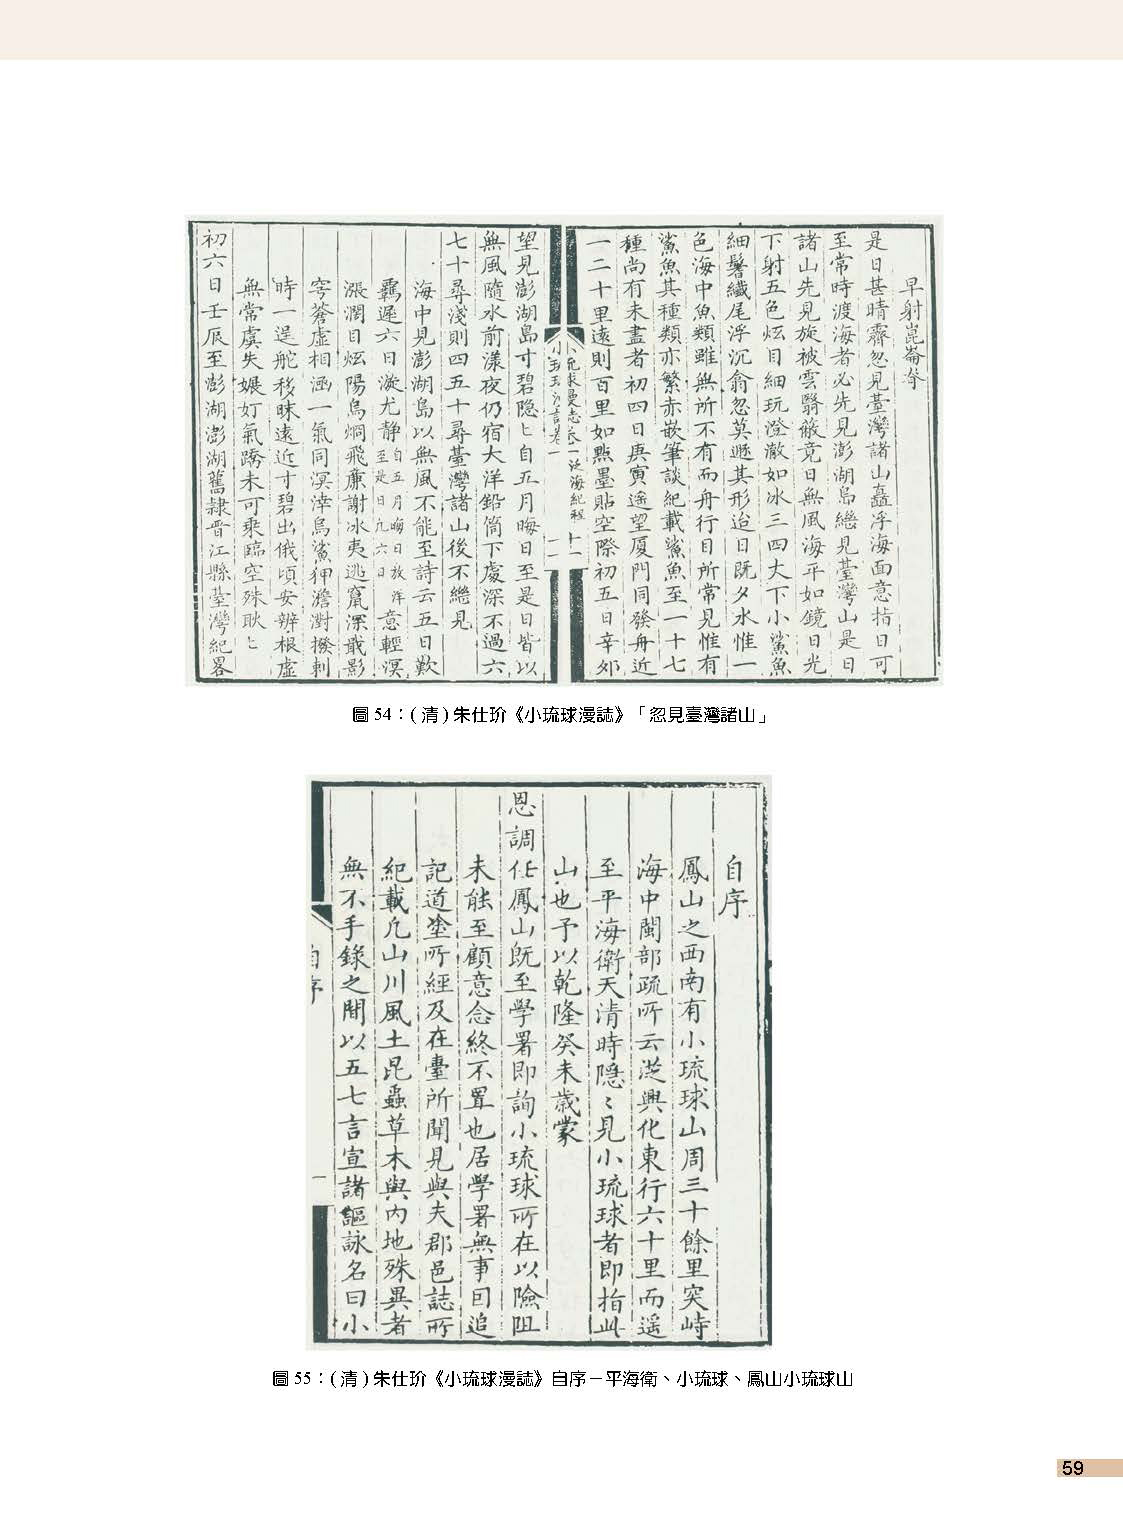 早射崑崙脊
是日甚晴霽忽見臺灣諸山矗浮海面意指日可
至常時渡海者必先見澎湖島纔見臺灣山是日
諸山先見旋被雲翳蔽竟日無風海平如鏡日光
下射五色炫目細玩澄澈如冰三四丈下小鯊魚
細鬐纎尾浮沉翕忽莫遯其形迨日既夕水惟一
色海中魚類雖無所不有而舟行目所常見惟有
鯊魚其種類亦繁赤嵌筆談紀載鯊魚至一十七
種尚有未盡者初四日庚寅遙望厦門同發舟近
一二十里遠則百里如㸃墨貼空際初五日辛夘
小琉球漫志卷一 泛海紀程 十一
望見澎湖島寸碧隐〻自五月晦日至是日皆以
無風隨水前漾夜仍宿大洋鉛筒下處深不過六
七十尋淺則四五十尋臺灣諸山後不纔見
海中見澎湖島以無風不能至詩云五日歎
羈遲六日漩尤静自五月晦日放洋至是日凢六日意輕溟
漲濶目炫陽烏烱飛亷謝冰夷逃竄深戢影
穹蒼虛相涵一氣同溟涬烏鯊狎澹對撥剌
時一逞舵移昧遠近寸碧出俄頃安辨根虛
無常虞失娠㚥氣蹻未可乘臨空殊耿〻
初六日壬辰至澎湖澎湖舊隷晋江縣臺灣紀畧
圖 54：( 清 ) 朱仕玠《小琉球漫誌》「忽見臺灣諸山」
自序
鳳山之西南有小琉球山周三十餘里突峙
海中閩部疏所云從興化東行六十里而遥
至平海衛天清時隱〻見小琉球者即指此
山也予以乾隆癸未歲蒙
恩調任鳳山既至學署即詢小琉球所在以險阻
未能至顧意念終不置也居學署無事因追
記道塗所經及在臺所聞見與夫郡邑誌所
紀載凡山川風土昆蟲草木與内地殊異者
無不手錄之間以五七言宣諸謳詠名曰小
自序
一
圖 55：( 清 ) 朱仕玠《小琉球漫誌》自序－平海衛、小琉球、鳳山小琉球山
59